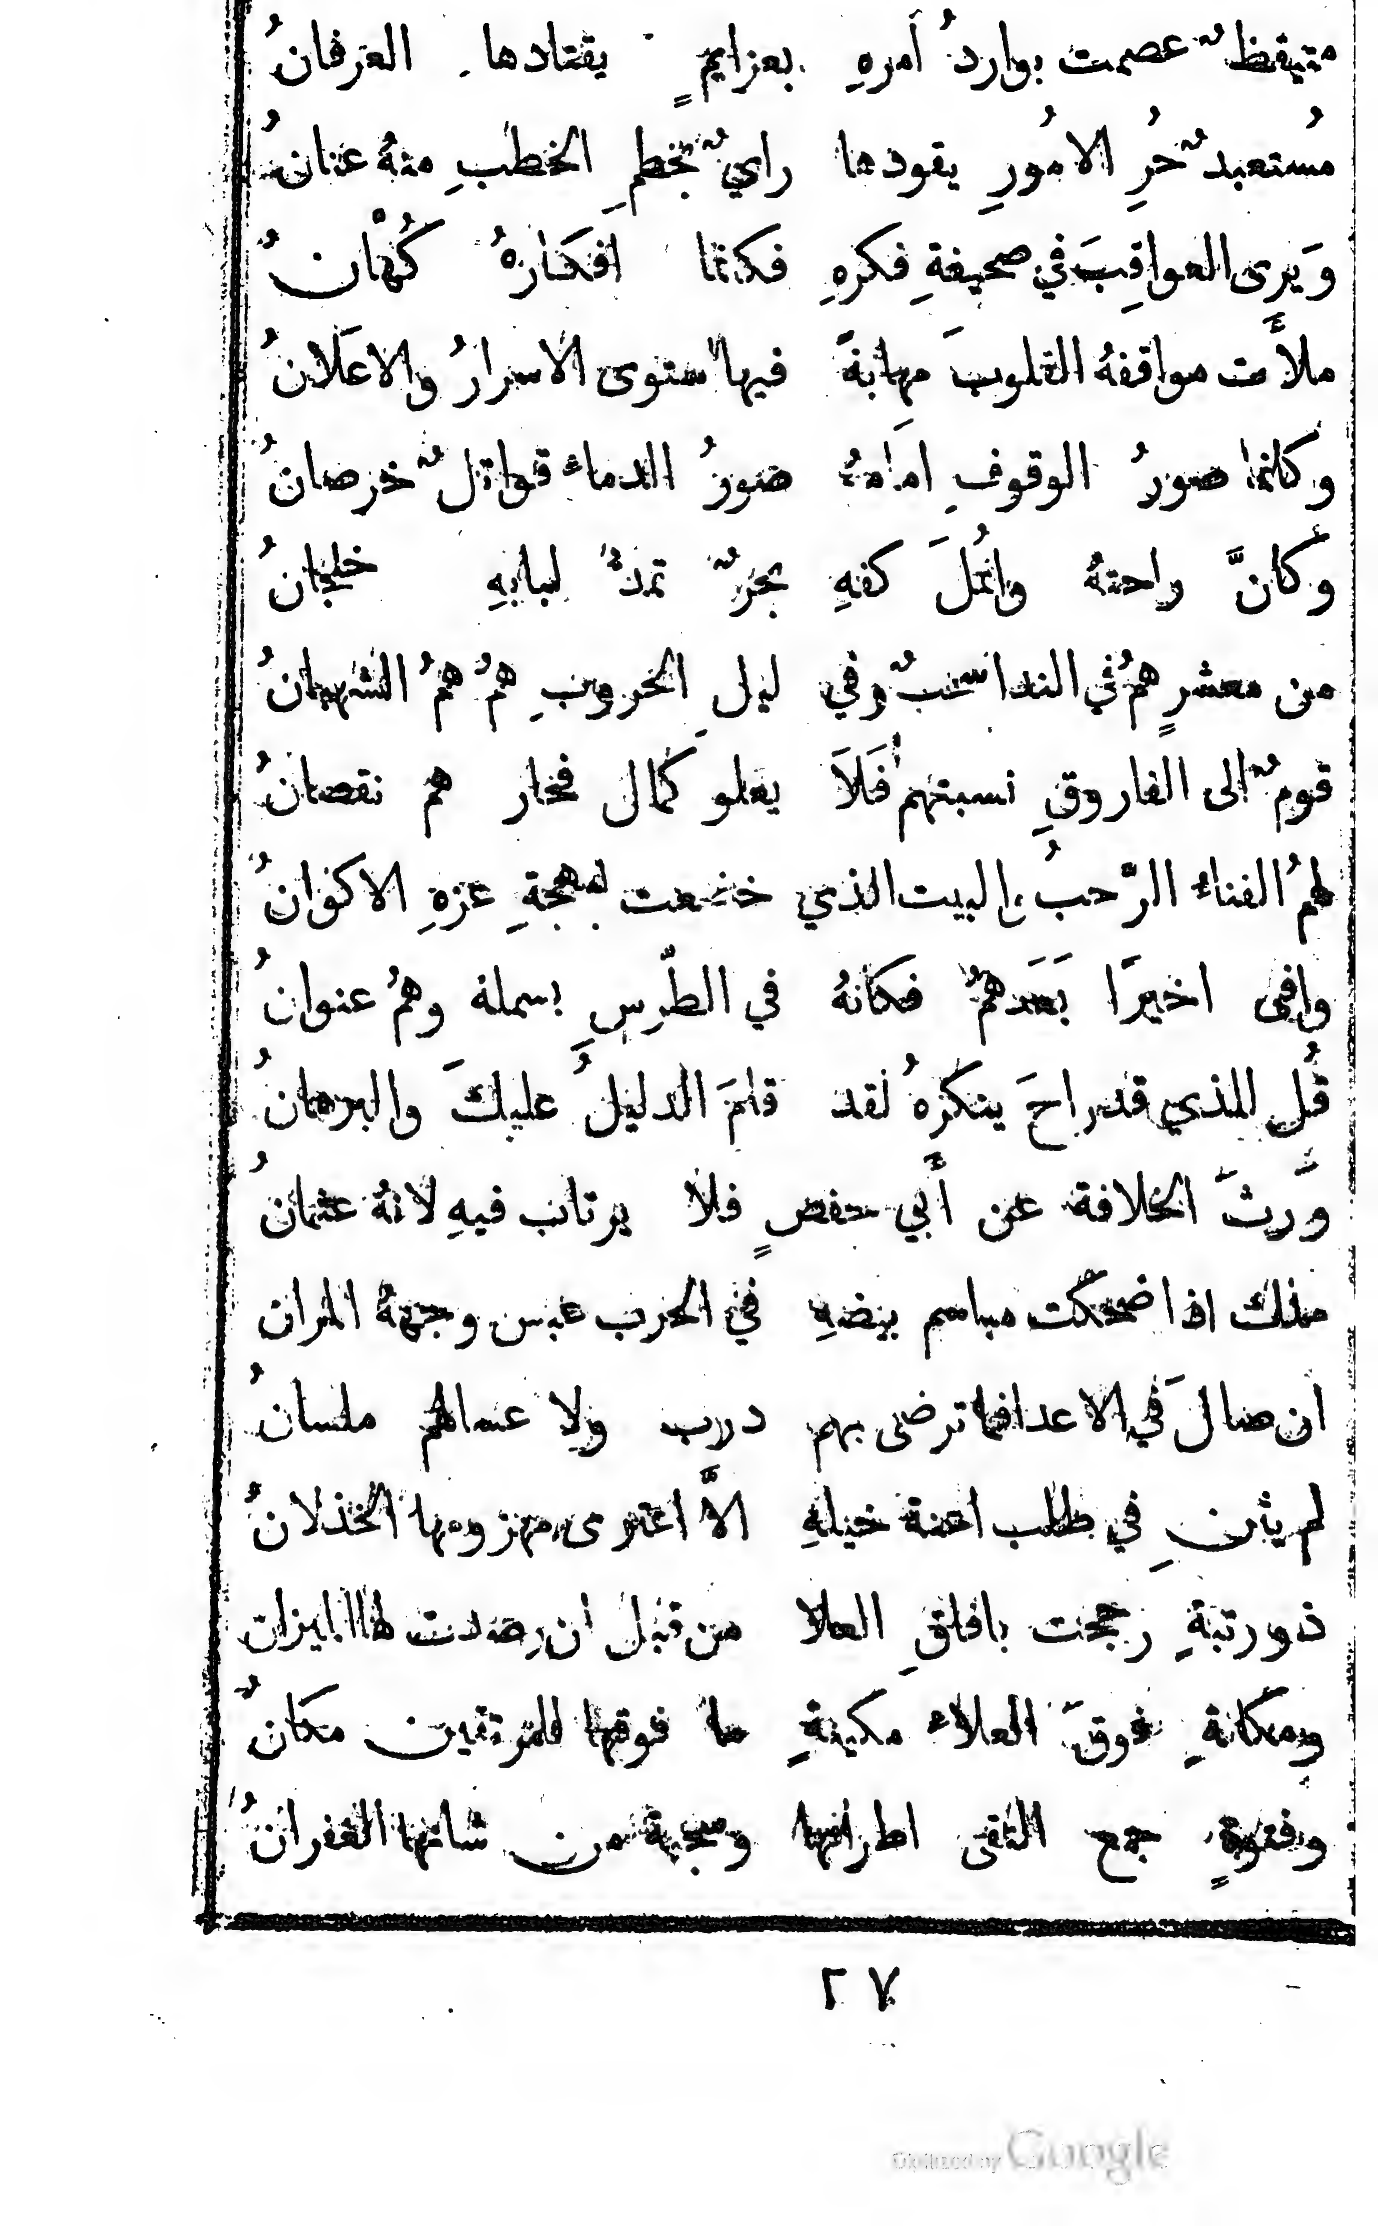 متيقظٌ عصمت بوادرُ أمرهِ بعزايمٍ يقتادها العرفانُ
مُستعبدٌ حُرِ الامُورِ يقودها رايٌ بخطمِ الخطبِ منهُ عنانُ
وَيرى العواقِبَ في صحيفةِ فكرهِ فكانما افكارهُ كُهّانُ
ملأَت مواقفهُ القلوبَ مهابةً فيها ستوى الاسرارُ والاعلانُ
وكانما صورُ الوقوفِ امامهُ صورُ الدماء قواتلٌ خرصانُ
وكأنَّ راحتهُ وانمُلَ كفهِ بحرٌ تمدهُ لبابهِ خلجانُ
من معشرٍ همُ في الندا سحبٌ وفي ليلِ الحروبِ همُ همُ الشهبانُ
قومٌ الى الفاروقِ نسبتهم فَلاَ يعلو كمال فخار هم نقصانُ
لهمُ الفناء الرَّحبُ والبيت الذي خضعت لبهجةِ عزهِ الاكوانُ
وافى اخيرًا بَعَدَهمُ فكانهُ في الطّرسِ بسملة وهمُ عنوانُ
قُل للذي قد راحَ ينكرهُ لقد قامَ الدليلُ عليكَ والبرهانُ
وَرثَ الخلافة عن أَبي حفصٍ فلا يرتاب فيهِ لانهُ عثمانُ
ملك اذا ضحكت مباسم بيضهِ في الحرب عبس وجههُ المران
ان صالَ في الاعدا فما ترضى بهم درب ولا عسالهم ملسانُ
لم يثنِ في طلب اعنة خيلهِ الاَّ اعترى مهزومها الخذلانُ
ذو رتبةِ رجحت بافاقِ العلا من قبل ان رصدت لها الميزان
ومكانةِ فوقَ العلاء مكينةِ ما فوقها للمرتقين مكانُ
وفتوةٍ جمع التقى اطرافها وسجية من شانها الغفرانُ
٢٧
Digitized by Google